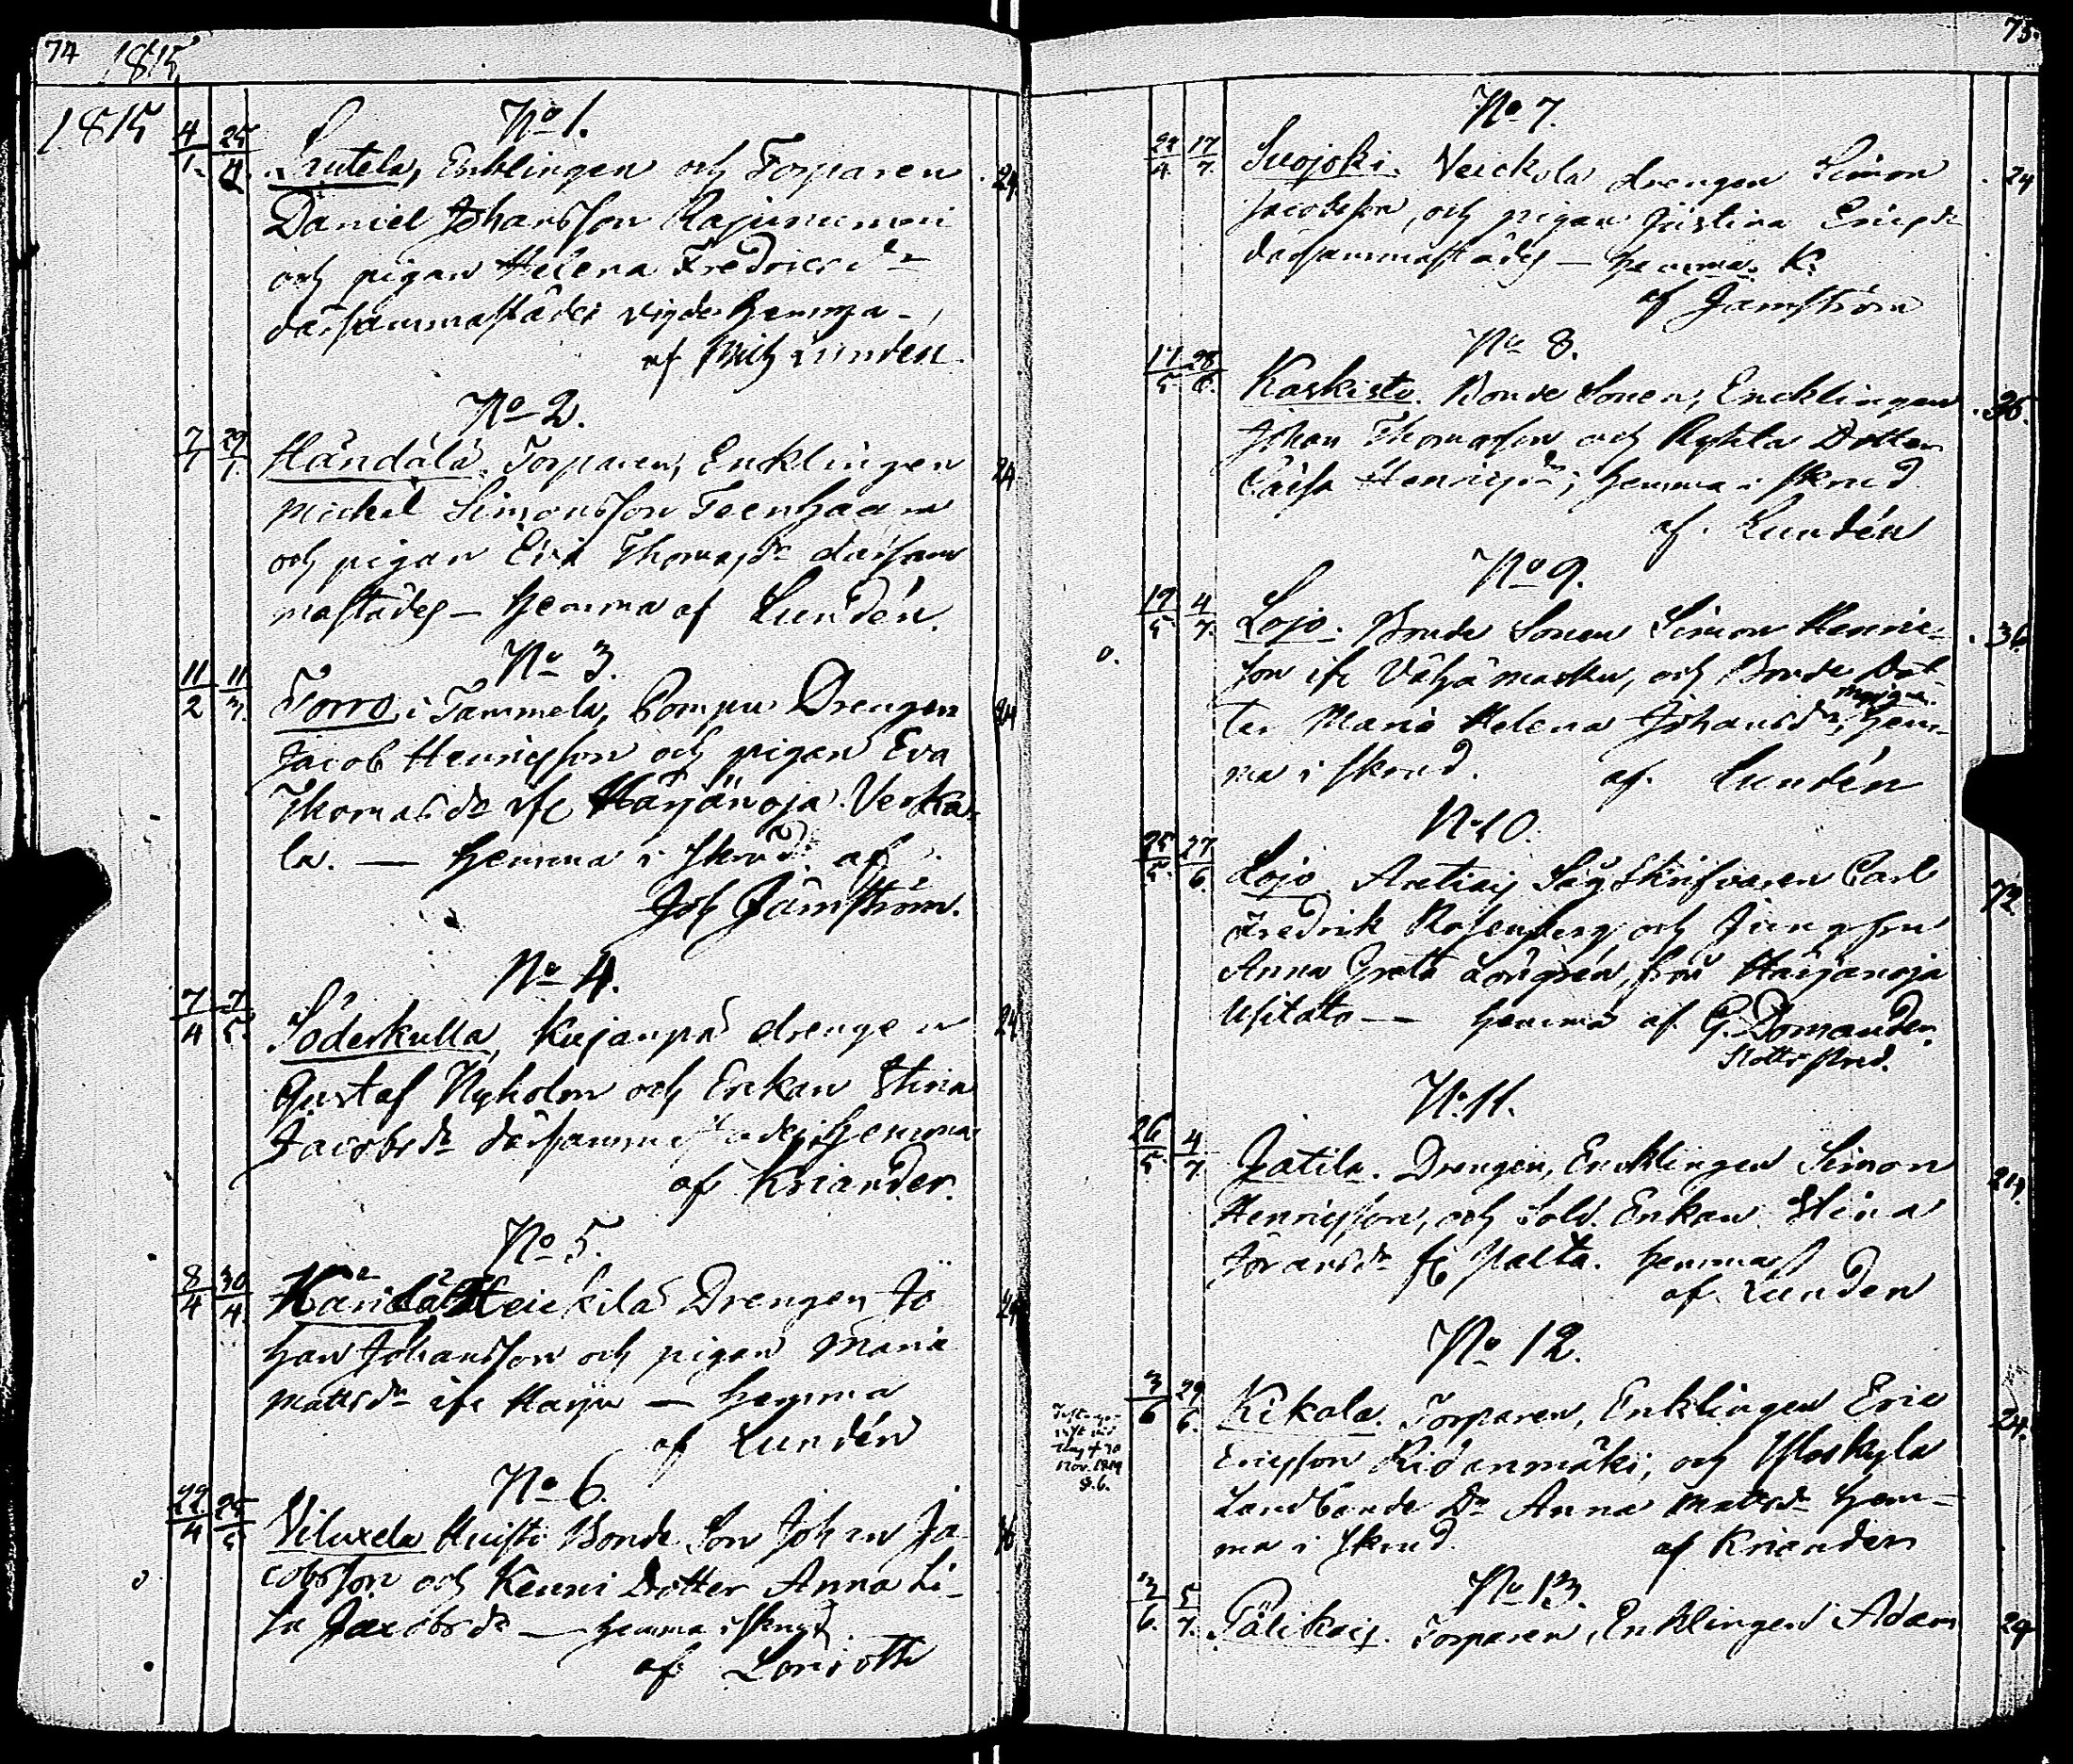 74 1815
1815
No 1.
4/1. 25/4. Prutela, Enklingen och Torparen 24
Daniel Johansson Rajunummi
och pigan Helena Fredricsdr
därsammastädes vigde hemma
af Mich Lundén
No 2.
7/1 29/1. Händälä. Torparen, Encklingen 24
Michel Simonsson Teenhaara
och pigan Eva Thomasdr därsam
mastädes — hemma af Lundén.
No 3.
11/2 11/3. Torro i Tammela, Pompu Drengen 24
Jacob Henricsson och pigan Eva
Thomasdr ifr Härjänoja Verka-
la. — hemma i skrud af
Joh Jämström.
No 4.
7/4 7/5. Söderkulla, Kujanpä drengen 24
Gustaf Nyholm och Enkan Stina
Jacobsdr därsammastädes, hemma
af Kriander.
No 5.
8/4 30/4. Händälä Heickilä Drengen Jo
han Johansson och pigan Maria
Mattsdr ifr Harju — hemma
af Lundén
No 6.
22/4 25/5 Viluxela Knisti Bonde Son Johan Ja
cobsson och Kenni Dotter Anna Li-
sa Jacobsdr — hemma i skrud.
af
75.
No 7.
24/4. 17/7. Suojoki. Veickola drengen Simon 24
Jacobsson, och pigan Justina Ericsdr
därsammastädes — hemma. K.
af Jamström
No 8.
17/5 28/6. Kaskisto. Bonde Sonen, Encklingen 36.
Johan Thomasson och Dotter
Caisa Henricsdr; hemma i skrud
af. Lundén
No 9.
19/5. 4/7. Lojo. Bonde Sonen Simon Henric- 36
son ifr Vähä Marku, och Bonde Dot-
ter Maria Helena Johansdr, hem-
ma i skrud. af. Lundén
N. 10.
25/5. 27/6. Lojo. Sågskrifvaren Carl 72
Fredrik Rosenberg och Jungfru
Anna Greta Löngrén, från Härjänoja
Usitalo — hemma af G. Domander.
No. 11.
26/5. 4/7. Jatila. Drengen, Encklingen Simon 24.
Henricsson, och Sold. Enkan Stina
Göransdr fr Palta. hemma
af Lunden
No 12.
3/6 29/6. Kikala. Torparen, Enklingen Eric 24.
Ericsson Kidanmäki, och
Landbonde Dr Anna Mattsdr hem-
ma i skrud. af Kriander
No 13.
3/6. 5/7. Pälikäis. Torparen, Enklingen Adam 24